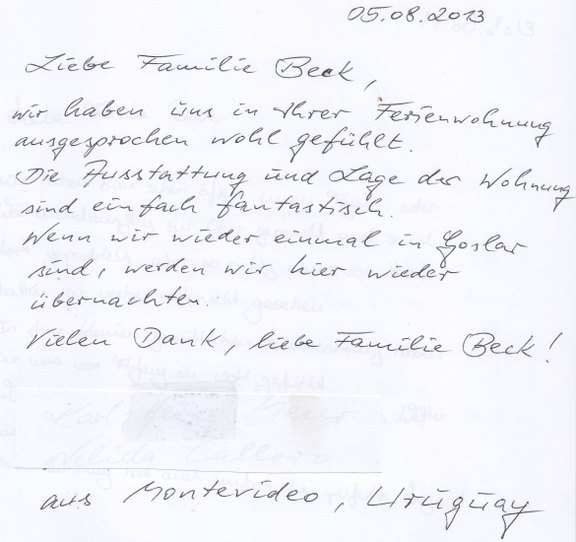 05.08.2013
Liebe Familie Beck,
wir haben uns in Ihrer Ferienwohnung
ausgesprochen wohl gefühlt.
Die Ausstattung und Lage der Wohnung
sind einfach fantastisch.
Wenn wir wieder einmal in Goslar
sind, werden wir hier wieder
übernachten.
Vielen Dank, liebe Familie Beck!
aus Montevideo, Uruguay